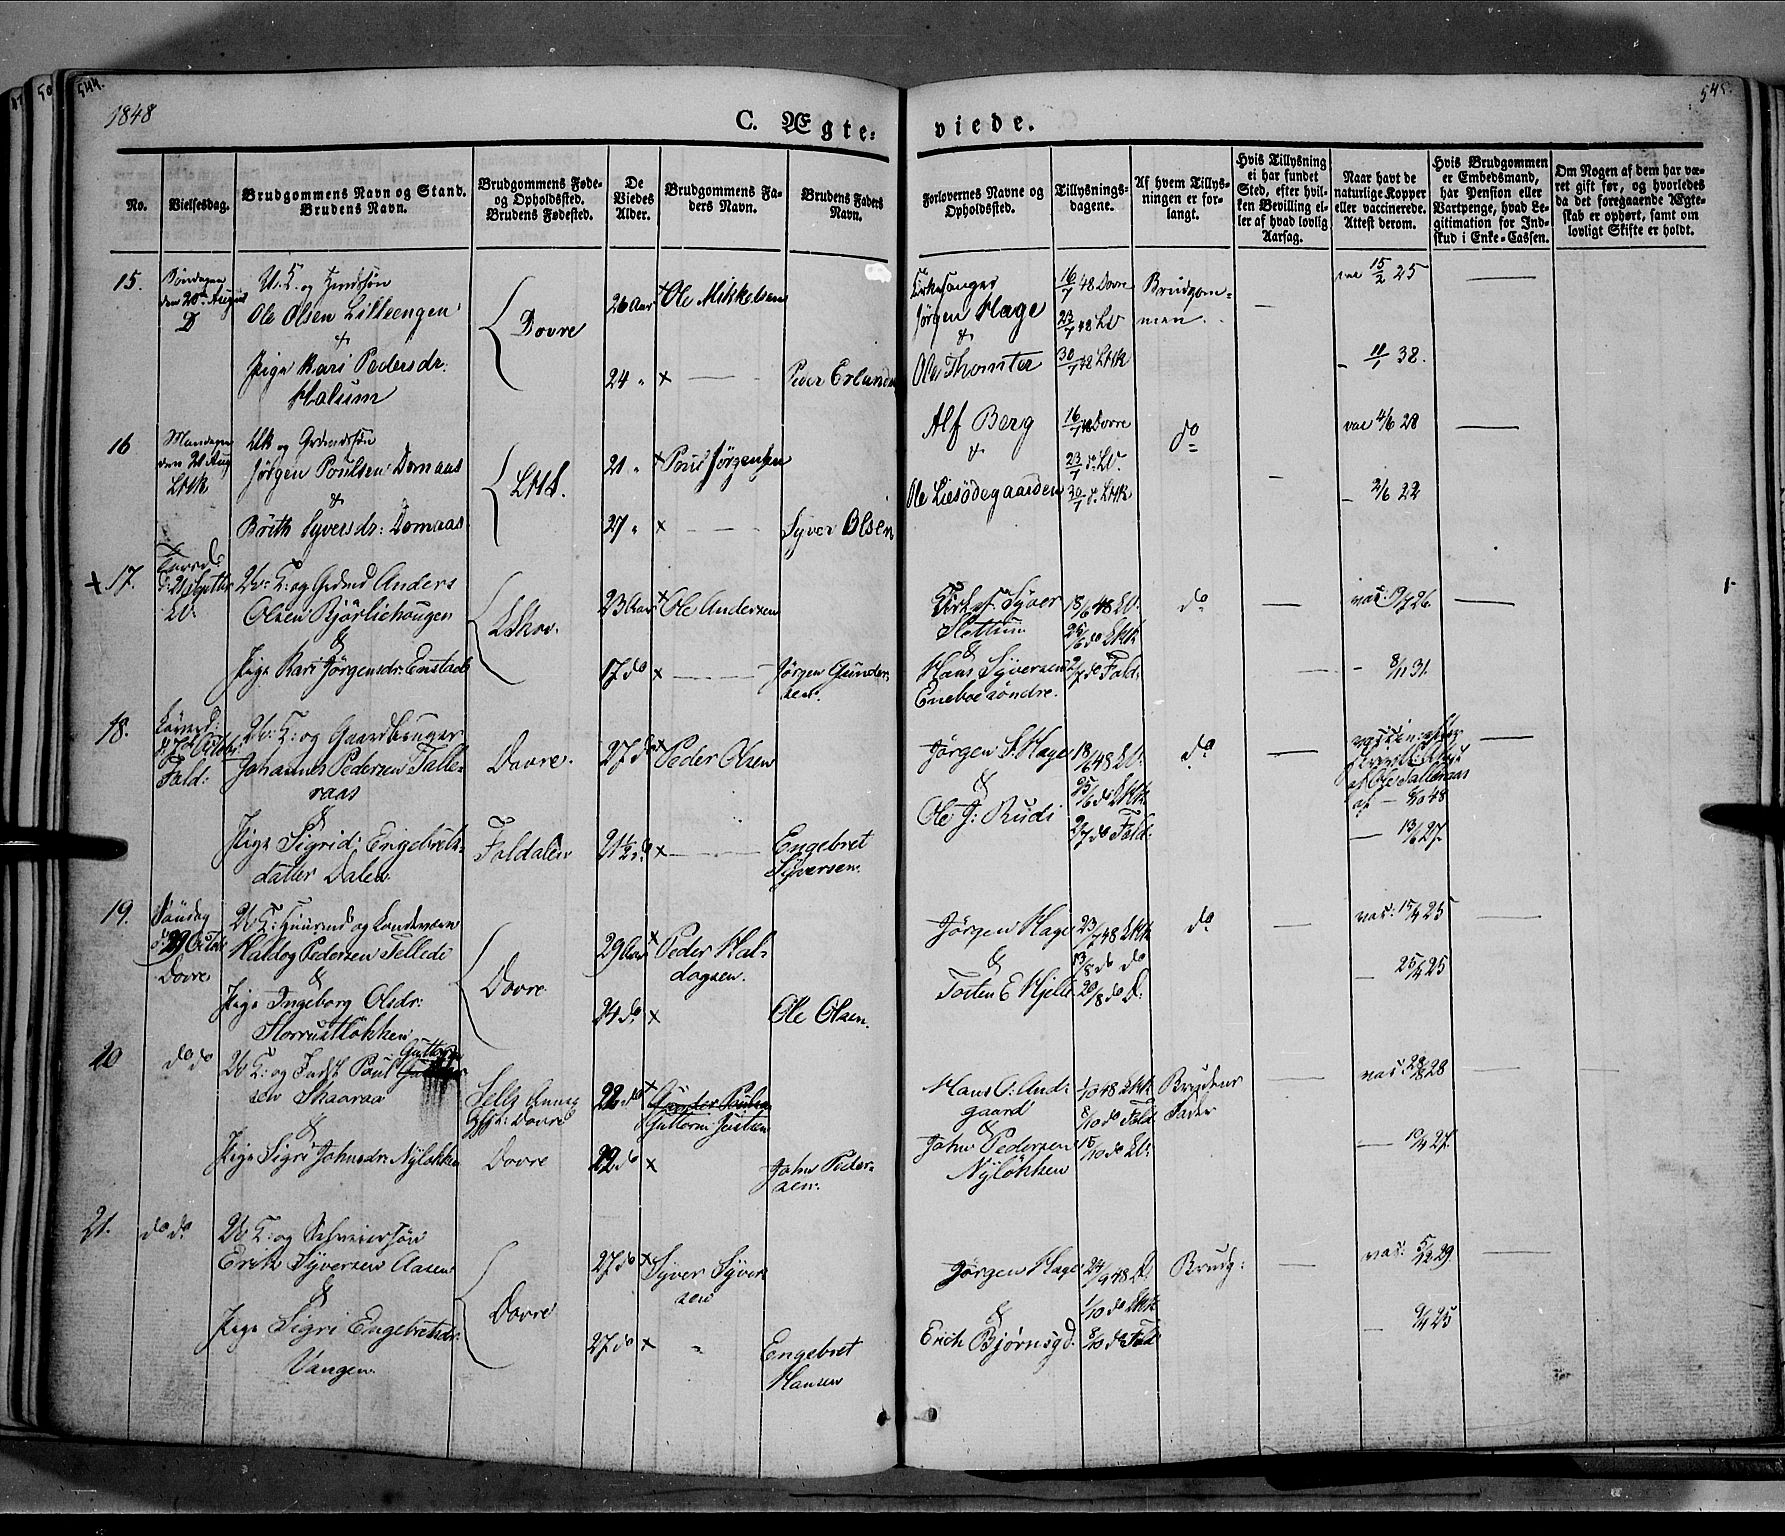 544.
545.
1848
C. Ægte-
viede.
No.
Vielsesdag.
Brudgommens Navn og Stand.
Brudens Navn.
Brudgommens Føde-
og Opholdssted.
Brudens Fødested.
De
Viedes
Alder.
Brudgommens Fa-
ders Navn.
Brudens Faders
Navn.
Forlovernes Navne og
Opholdssted.
Tillysnings-
dagene.
Af hvem Tillys-
ningen er for-
langt.
Hvis Tillysning
ei har fundet
Sted, efter hvil-
ken Bevilling el-
ler af hvad lovlig
Aarsag.
Naar havt de
naturlige Kopper
eller vaccinerede.
Attest derom.
Hvis Brudgommen
er Embedsmand,
har Pension eller
Vartpenge, hvad Le-
gitimation for Ind-
skud i Enke-Cassen.
Om Nogen af dem har væ-
ret gift før, og hvorledes
da det foregaaende Ægte-
skab er ophørt, samt om
lovligt Skifte er holdt.
15.
Søndagen
den 20de August
D
U. K. og
Ole Olsen Lilleengen
&
Pige Kari Pedersdr:
Holsum
Dovre
26 Aar
24 "
Ole Mikkelsen
Peder Erlands
Kirkesanger
Jørgen Hage
&
Ole Thomter
16/7 48 Dovre
23/7 48 LV
30/7 48 LHK
Brudgom-
men.
vac 15/2 25
11/7 38.
16
Mandagen
den 21 Aug
LHK
og Grdmdssøn
Jørgen Poulsen Domaas
&
Brith Syversdr: Domaas
LHK.
21 "
27 "
Poul Jørgensen
Syver Olsen
Alf Berg
&
Ole Liesødegaarden
16/7 Dovre
23/7 d. LV.
30/7 d. LHK
do
vac 4/6 28
2/6 22
+ 17.
LV.
Uv: K: og Grdmd Anders
Olsen Bjørliehougen
&
Pige Kari Jørgensdr: Enstad
LShov.
23 Aar
17 do
Ole Andersen
Jørgen Gunder-
sen.
Kirkes. Syver
Slottum
&
Hans Syversen
Eneboe søndre.
18/6 48 LV:
25/6 do LHK
2/7 do Fold:
do
vac: 19/7 26.
8/11 31.
1-
18.
Løverd:
Fold:
Uv: K: og Gaardbruger
Johannes Pedersen Talle-
raas
&
Pige Sigrid: Engebrets-
datter Dalen
Dovre.
Foldalen
27 do
21 1/2 do
Peder Olsen
Engebret
Syversen.
Jørgen S. Hage
&
Ole J: Rudi
18/6 48 LV:
25/6 do LHK
2/7 do Fold:
do
af Ole Talleraas
13/6 27.
19.
Søndag
d: 29 Octbr
Dovre
Uv K: Huusmd og Landevern
Haldog Pedersen Tellede
&
Pige Ingeborg Olsdr:
Storrustløkken
Dovre
29 Aar
24 do
Peder Hal-
dogsen.
Ole Olsen.
Jørgen Hage
&
Tosten E Hjelle
23/7 48 LHK
13/8 do do
20/8 do D:
do
vac: 15/7 25
25/7 25
20
do do
Uv K: og Poul Guttorm
sen Skaaraa
&
Pige Sigri Johnsdr: Nyløkken
Sells Annex
Dovre
Dovre
22 do
Gunder Poulsen
Guttorm Jostsen
John Peder-
sen.
Hans O: And-
gaard
&
John Pedersen
Nyløkken
1/10 48 LHK
8/10 do Fold.
15/10 do LV:
Brudens
Fader
vac: 28/8 28
10/7 27.
21.
do do.
Uv K: og Selveiersøn
Erik Syversen Aasen
&
Pige Sigri Engebretsdr:
Vangen.
Dovre
27 do
27 do
Syver Syver-
sen
Engebret
Hansen
Jørgen Hage
&
Erich Bjørnsgd.
24/9 48 D.
1/10 do LHK
8/10 do Fold
Brudg:
vac: 5/12 29.
9/7 25